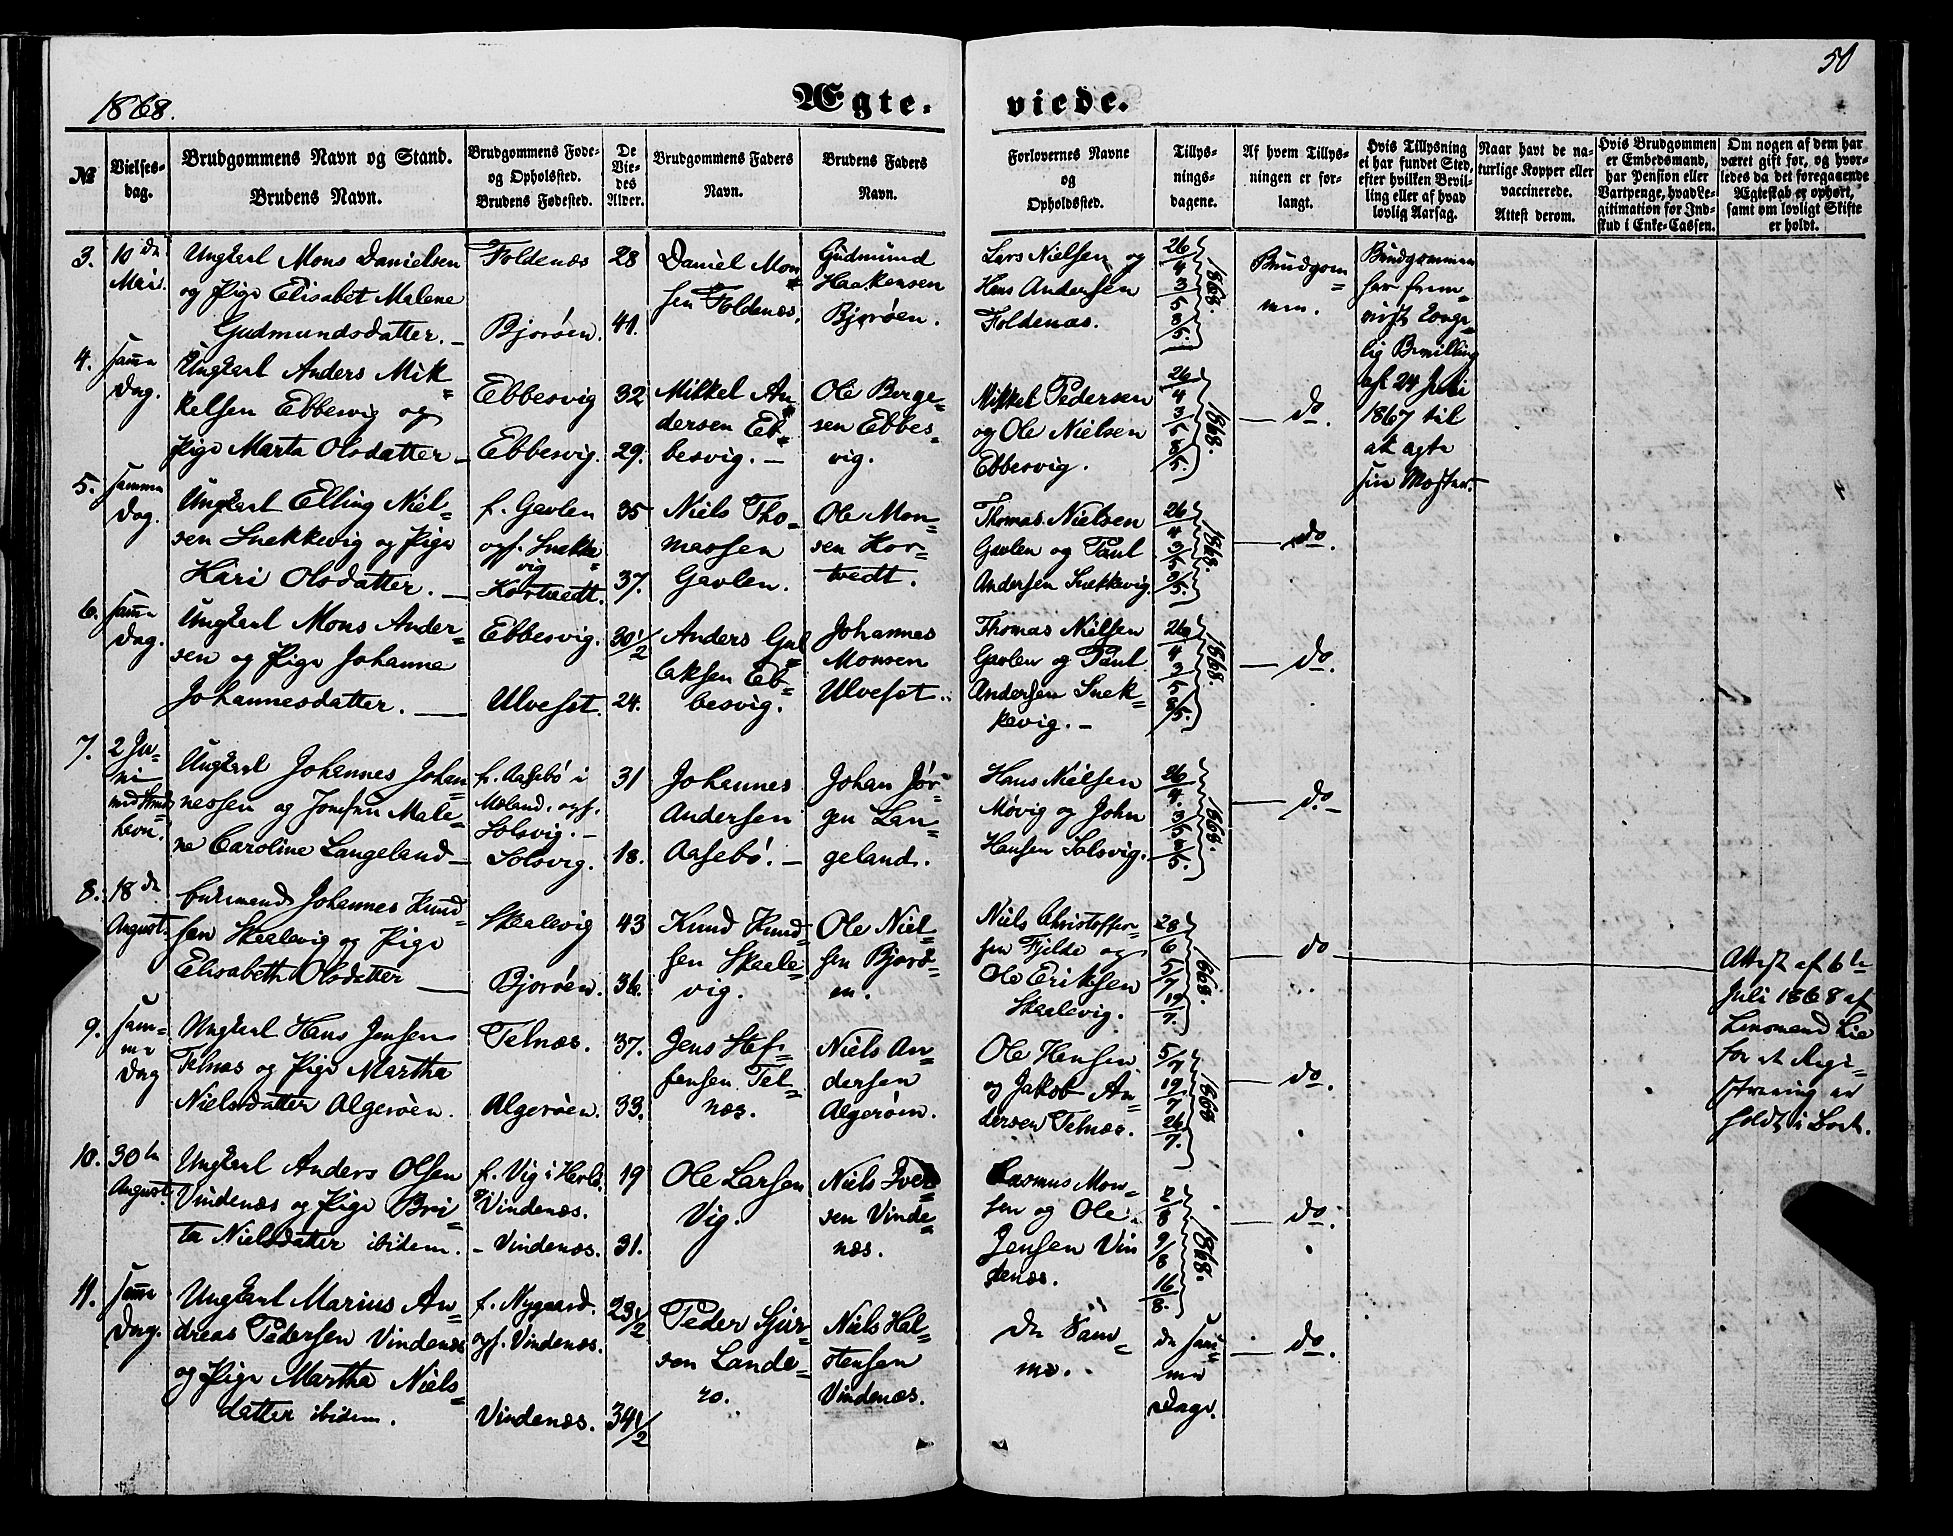 50
1868.
Ægte- viede.
№
Vielses-
dag.
Brudgommens Navn og Stand.
Brudens Navn.
Brudgommens Føde-
og Opholdssted.
Brudens Fødested.
De
Vie-
des
Alder.
Brudgommens Faders
Navn.
Brudens Faders
Navn.
Forlovernes Navne
og
Opholdssted.
Tillys-
nings-
dagene.
Af hvem Tillys-
ningen er for-
langt.
Hvis Tillysning
ei har fundet Sted,
efter hvilken Bevil-
ling eller af hvad
lovlig Aarsag.
Naar havt de na-
turlige Kopper eller
vaccinerede.
Attest derom.
Hvis Brudgommen
er Embedsmand,
har Pension eller
Vartpenge, hvad Le-
gitimation for Ind-
skud i Enke-Cassen.
Om nogen af dem har
været gift før, og hvor-
ledes da det foregaaende
Ægteskab er ophørt,
samt om lovligt Skifte
er holdt.
3.
10de
Mai.
Ungkarl Mons Danielsen
og Pige Elisabet Malene
Gudmundsdatter. —
Foldenæs
Bjorøen.
28
41.
Daniel Mon=
sen Foldenæs.
Gudmund
Haakensen
Bjorøen.
Lars Nielsen og
Hans Andersen
Foldenæs.
26/4
3/5
3/5.
1868.
Brudgom=
men.
Brudgommen
har frem=
vist Konge=
lig Bevilling
af 24 Juli
1867 til
at ægte
sin Moster.
4.
samme
Dag.
Ungkarl Anders Mik=
kelsen Ebbesvig og
Pige Marta Olsdatter —
Ebbesvig
Ebbesvig.
32
29.
Mikkel An=
dersen Eb=
besvig. —
Ole Børge=
sen Ebbes=
vig.
Mikkel Pedersen
og Ole Nielsen
Ebbesvig.
26/4
3/5
3/5.
1868.
— do.
5.
samme
Dag.
Ungkarl Elling Niel=
sen Snekkevig og Pige
Kari Olsdatter. —
f. Gavlen
og f. Snekke=
vig
Kortvedt.
35
37.
Niels Tho=
massen
Gavlen.
Ole Mon=
sen Kor=
tvedt.
Thomas Nielsen
Gavlen og Paul
Andersen Snekkevig.
26/4
3/5
3/5.
1868.
— do.
6.
samme
Dag.
Ungkarl Mons Ander=
sen og Pige Johanne
Johannesdatter. —
Ebbesvig.
Ulveset.
30 1/2
24.
Anders Gul=
laksen Eb=
besvig.
Johannes
Monsen
Ulveset.
Thomas Nielsen
Gavlen og Paul
Andersen Snek=
kevig. —
26/4
3/5
3/5.
1868.
— do.
7.
2 Ju=
ni
Ungkarl Johannes Johan=
nessen og Jomfru Male=
ne Caroline Langeland —
f. Aasebø i
Meland, og f.
Solsvig. —
Solsvig.
31
18.
Johannes
Andersen
Aasebø. —
Johan Jør=
gen Lan=
geland.
Hans Nielsen
Møvig og John
Hansen Solsvig.
26/4
3/5
3/5.
1868.
— do. —
8.
18de
August.
Enkemand Johannes Knud=
sen Skaalevig og Pige
Elisabeth Olsdatter —
Skaalevig
Bjorøen.
43
36.
Knud Knud=
sen Skaale=
vig.
Ole Niel=
sen Bjorø=
en.
Niels Christoffer=
sen Fjelde og
Ole Eriksen
Skaalevig.
28/6
5/7
19/7.
1868.
— do
Attest af 6te
Juli 1868 af
Lensmand Lie
for at Regi=
strering er
holdt i Boet.
9.
sam=
me
Dag
Ungkarl Hans Jensen
Telnæs og Pige Martha
Nielsdatter Algerøen.
Telnæs.
Algerøen.
37.
33.
Jens Stef=
fensen Tel=
næs.
Niels An=
dersen
Algerøen.
Ole Hansen
og Jakob An=
dersen Telnæs.
5/7
19/7
26/7.
1868
— do.
10.
30te
August.
Ungkarl Anders Olsen
Vindenæs og Pige Bri=
ta Nielsdatter ibidem.
f. Vig i Herlø.
Vindenæs.
— Vindenæs.
19
31.
Ole Larsen
Vig.
Niels Iver=
sen Vinde=
næs.
Rasmus Mon=
sen og Ole
Jensen Vin
denæs.
2/8
9/8
16/8.
1868.
— do.
11.
samme
Dag.
Ungkarl Marius An=
dreas Pedersen Vindenæs
og Pige Martha Niels=
datter ibidem.
f. Nygaard.
og f. Vindenæs.
Vindenæs.
23 1/2
34 1/2
Peder Sjur=
sen Lande=
ro.
Niels Hal=
stensen
Vindenæs.
De Sam=
me.
de sam=
me
Dage.
— do.